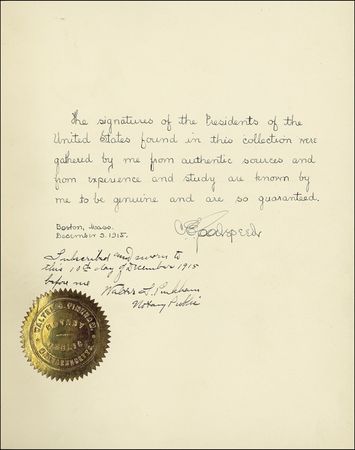 The signatures of the Presidents of the
United States found in this collection were
gathered by me from authentic sources and
from experience and study are known by
me to be genuine and are so guaranteed.
Goodspeed
Boston, Mass.
December 3, 1915.
Subscribed and sworn to
this 10th day of December 1915
before me Walter L. Pinkham
Notary Public
NOTARY
PUBLIC